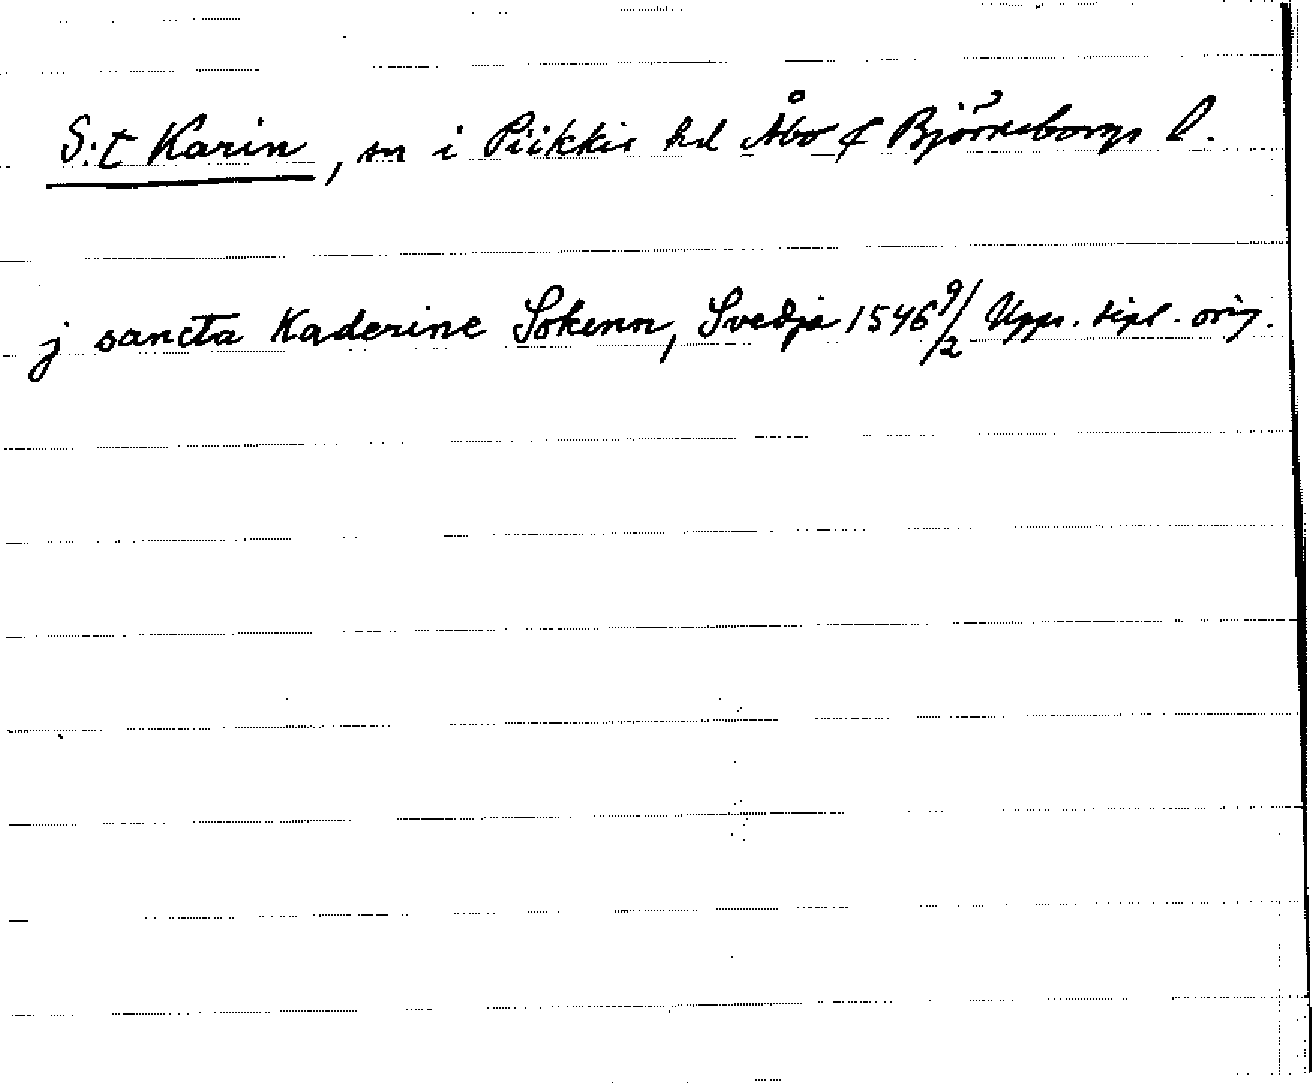 S:t Karin, sn i Piikkis hd Åbo & Björneborgs l.
j sancta Kaderine Sokenn, Svedja 1546 9/2 Upps. dipl. orig.